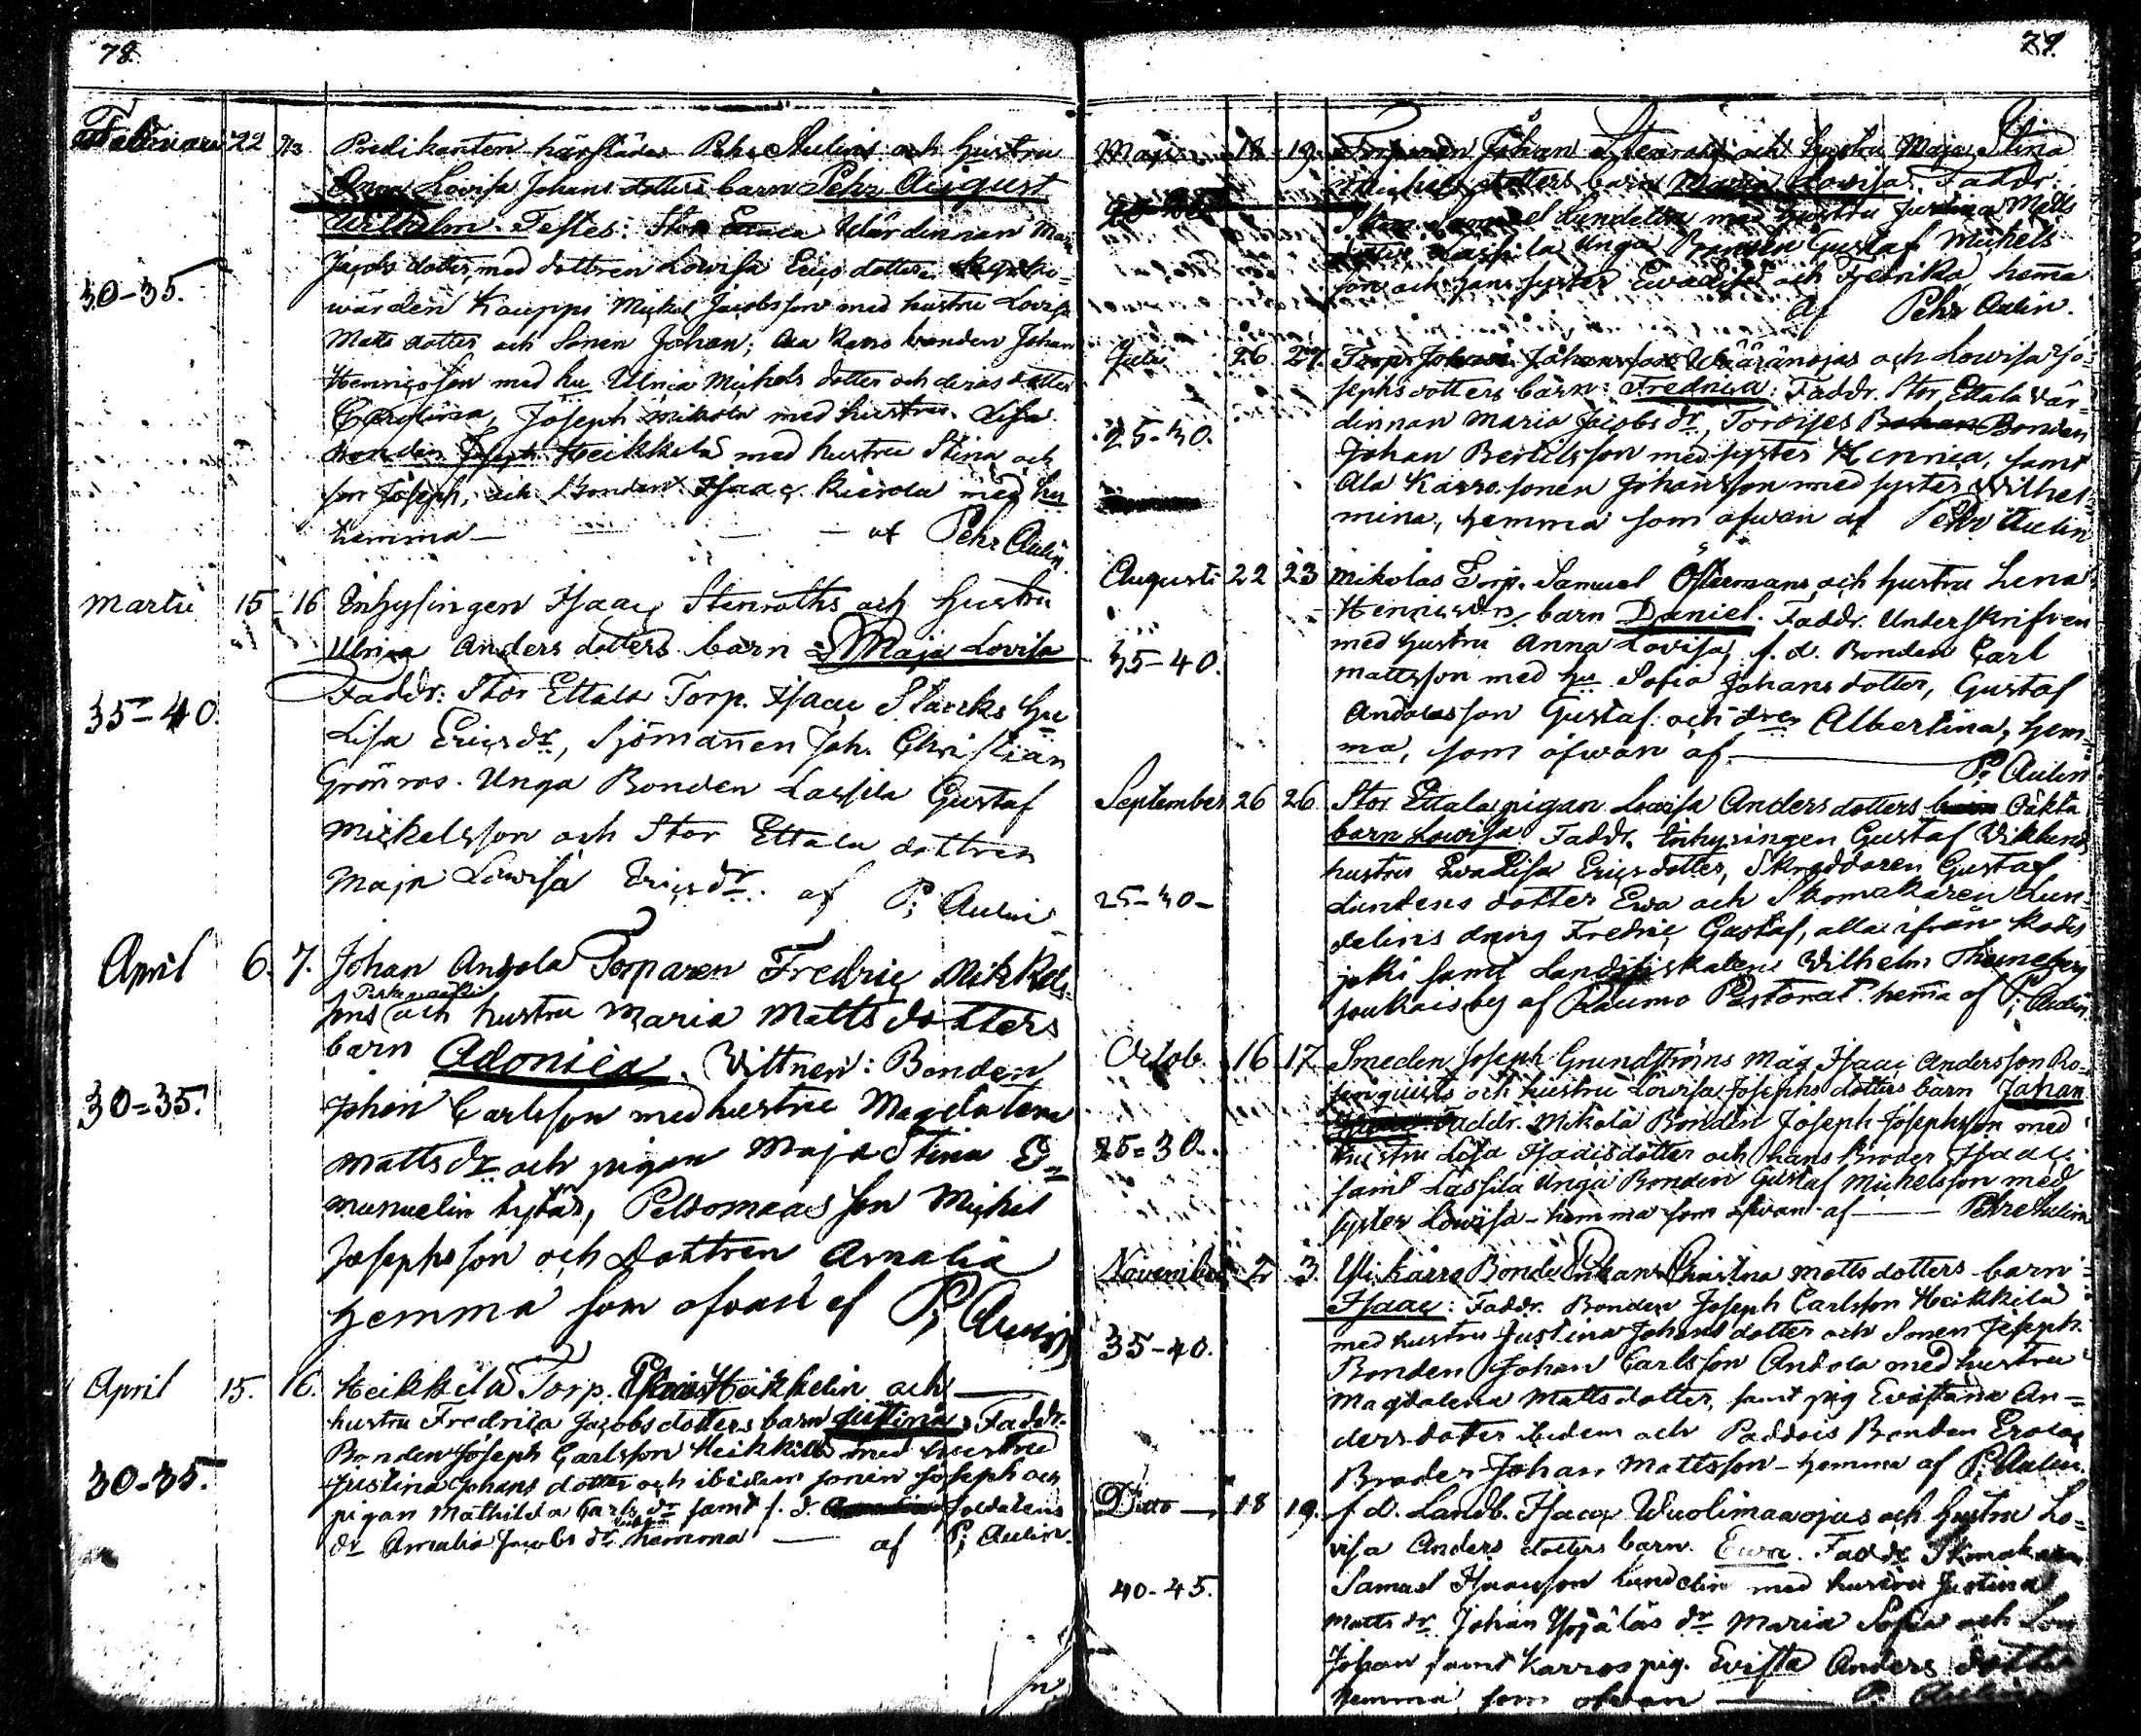 78.
Februari 22 23 Predikanten härstädes Pehr Aulins och Hustru
Anna Lovisa Johans dotters barn Pehr August
Wilhelm. Testes: Stor Wärdinnan
Jacobs dotter, med dottren Lowisa Erics dotter
30-35.
wärden Kauppi Mickel Jacobsson med hustru Lovisa
Matts dotter och Sonen Johan; Ala Karro bonden Johan
Henricsson med hu Ulrica Michels dotter och deras dotter
Carolina, Joseph Mikola med hustru Lisa
bonden Joseph Heikkilä med hustru Stina och
son Joseph, och Bonden Isaac med hu
hemma — af Pehr Aulin
Martii 15 16 Inhysingen Isaac Stenroths och Hustru
Ulrica Anders dotters barn Maja Lovisa
Faddr: Stor Ettala Torp. Isaac Starcks hu
35-40.
Lisa Ericsdr, Sjömannen Joh. Christian
Grönroos. Unga Bonden Lassila Gustaf
Mickelsson och Stor Ettala dottren
Maja Lowisa Ericsdr. af P; Aulin
April 6. 7. Johan Andola Torparen Fredric Mikkels-
sons och hustru Maria Matts dotters
barn Adonica. Vittnen: Bonden
30=35.
Johan Carlsson med hustru Magdalena
Mattsdr och pigan Maja Stina E=
manuelin tytär, Peldomaas son Michel
Josephsson och Dottren Amalia
hemma som ofvan af P; Aulin
April 15. 16. Heikkilä Torp. Heikkelin och
hustru Fredrica Jacobs dotters barn Justina. Faddr.
Bonden Joseph Carlsson Heikkilä med hustru
30-35.
Justina Johans dotter och ibidem sonen Joseph och
pigan Mathilda Carls dr samt f. d. Soldatens
dr Amalia Jacobs dr hemma — af P; Aulin.
79.
Maji 18 19. Torparen Johan och hustru Maja Stina
Michels dotters barn Maria Lowisa. Faddr:
Skom. Samuel Lundelin med hustru Justina Matts
dotter Lassila Unga Bonden Gustaf Michels
son och hans syster Ewa Lisa och Fredrika, hemma
af Pehr Aulin.
Julii 26 27. Torp. Johan Johansson och Lowisa Jo-
sephs dotters barn: Fredrica. Faddr. Stor Ettala vär-
dinnan Maria Jacobs dr, Bonden
25-30.
Johan Bertilsson med syster Henrica, samt
Ala Karro sonen Johansson med syster Wilhel-
mina, hemma som ofwan af Pehr Aulin
Augusti 22 23 Mikolas Torp. Samuel Östermans och hustru Lena
Henricsdrs barn Daniel. Faddr. Underskrifven
35-40.
med hustru Anna Lovisa, f. d. Bonden Carl
Mattsson med hu Sofia Johansdotter, Gustaf
Andersson Gustaf och dren Albertina, hem-
ma, som ofwan af — P; Aulin
September 26 26. Stor Ettala pigan Lowisa Anders dotters Oäkta
barn Lowisa. Faddr. Inhysingen Gustaf Viklunds
hustru Ewa Lisa Ericsdotter, Skräddaren Gustaf
25-30-
Lundens dotter Ewa och Skomakaren Lun-
delins dräng Fredric Gustaf, alla ifrån
samt Landsfiskalen Wilhelm Thuneberg
af Raumo Pastorat. hema af P; Aulin
Octob. 16 17. Smeden Joseph Grundströms Måg Isaac Andersson Ro-
senquists och hustru Lowisa Josephs dotters barn Johan
Isaac. Faddr. Mikola Bonden Joseph Josephsson med
25=30.
hustru Lisa Isaacsdotter och hans Broder Isaac,
samt Lassila Unga Bonden Gustaf Michelsson med
syster Lowisa - hemma som ofwan af — Pehr Aulin
November 2 3. Yli Karro Bonde Christina Matts dotters barn
Isaac: Faddr. Bonden Joseph Carlsson Heikkilä
35-40.
med hustru Justina Johans dotter och Sonen Joseph.
Bonden Johan Carlsson Andola med hustru
Magdalena Matts dotter, samt pig Evastina An=
dersdoter ibidem och Paddois Bonden
Broder Johan Mattsson - hemma af P; Aulin
Ditto 18 19. f. d. Landb. Isaac Wuolimaaojas och hustru Lo=
visa Anders dotters barn. Ewa. Faddr Skomakaren
40-45.
Samuel Isaacsson Lundelin med hustru Justina
Matts dr Johan Yöjäläs dr Maria Sofia och Son
Johan samt Karros pig. Evista Anders dotter
hemma som ofwan — P. Aulin